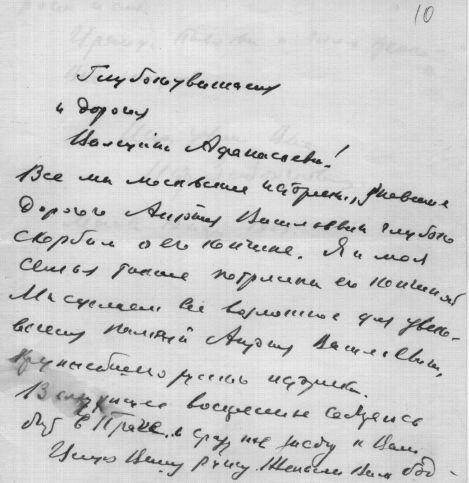 10
Глубокоуважаемая
и дорогая
Афанасьевна!
Все мы московские историки, знавшие
дорогого Антония Васильевича глубоко
скорбим о его кончине. Я и моя
семья также потрясены его кончиной
Мы сделаем все возможное для увеко-
вечения памяти Антония Васильевича,
крупнейшего русского историка.
В следующее воскресенье
буду в Праге и сразу же зайду к Вам.
Целую Вашу руку. Желаем Вам бод-